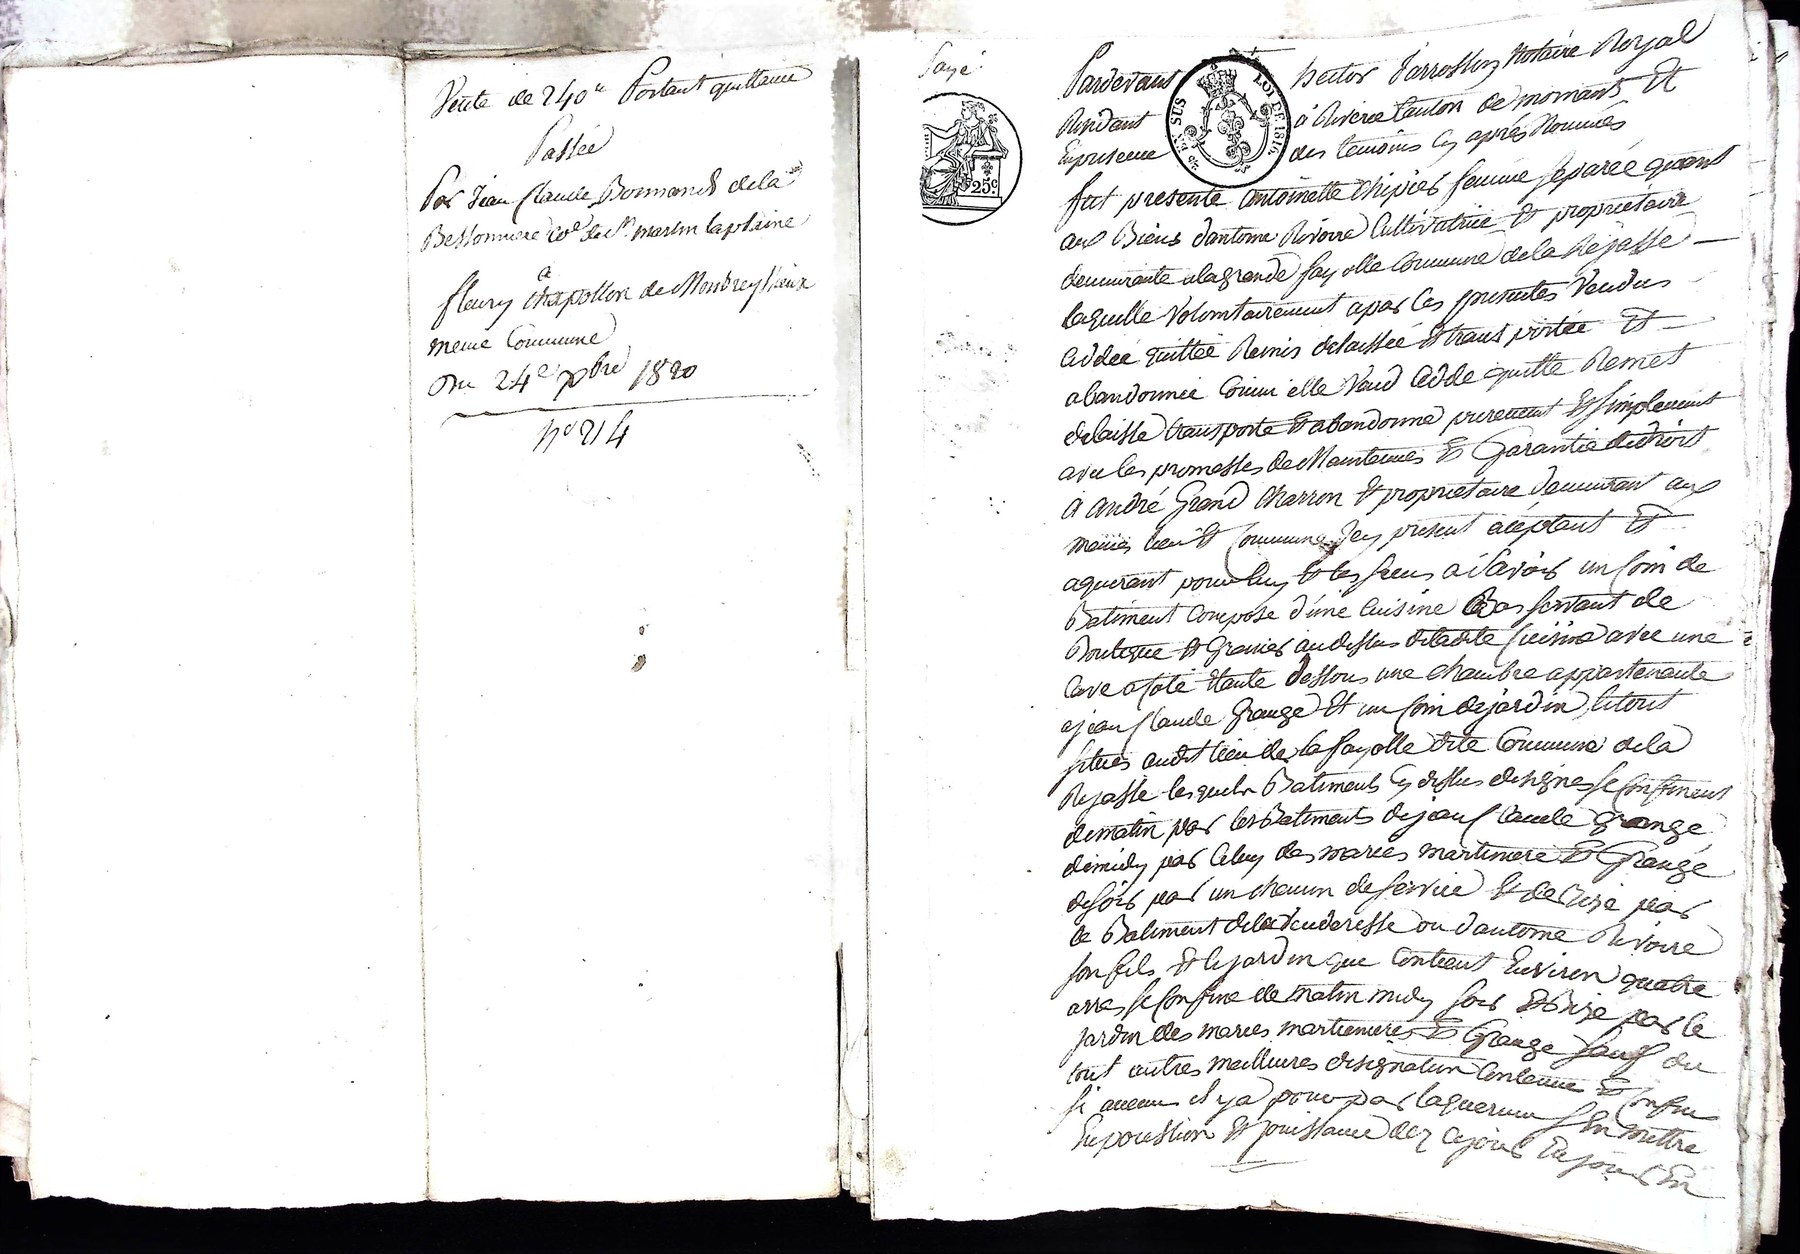 Vente de 240# Portant quittance
Passée
Par Jean Claude Bonnand de la
Bessonniere Coe de St. martin la plaine
a
fleury chapollon de Monbreyzieux
meme Commune
Du 24e xbre 1820
No 214
Payé
25c
EN SUS LOI DE 1816
Pardevant hector Parrossy Notaire Royal
Residant à Riverie Canton de mornant Et
En presence des temoins Cy après Nommés
fut presente antoinette chipier femme separée quant
aux Biens d'antoine Rivoire Cultivatrice et proprietaire
demeurante a la grande fayolle Commune de la Rejasse
laquelle volontairement a par Ces presentes vendus
Cedée quittée Remis delaissée et transportée Et
abandonnée Comm'elle vend Cedde quitte Remet
delaisse transporte et abandonne purement et simplement
avec les promesses de Maintenues et Garantie de droit
à andré Grand charron et proprietaire demeurant aux
memes lieu et Commune Icy present acéptant Et
aquerant pour luy et les siens a Savoir un Coin de
Batiment Composé d'une Cuisine Bas servant de
Boutique et Grenier au dessus de ladite Cuisine avec une
Cave a Coté Etante dessous une chambre appartenante
a jean Claude Grange Et un Coin de jardin, le tout
situes audit lieu de la fayolle dite Commune de la
Rejasse lesquels Batiments Cy dessus designés se Confinent
de matin par les Batiments de jean Claude Grange
de midy par Celuy des maries martiniere et Grange
de soir par un chemin de service et de Bize par
le Batiment de la Venderesse ou d'antoine Rivoire
son fils, et le jardin que Contient Environ quatre
ares se Confine de matin midy soir et Bize par le
jardin des maries martinieres et Grange sauf du
tout autres meilleures designation Contenue et Confin
si aucun il y a pour par laquereur S'En mettre
En possession et jouissance dez Ce jour En jour En